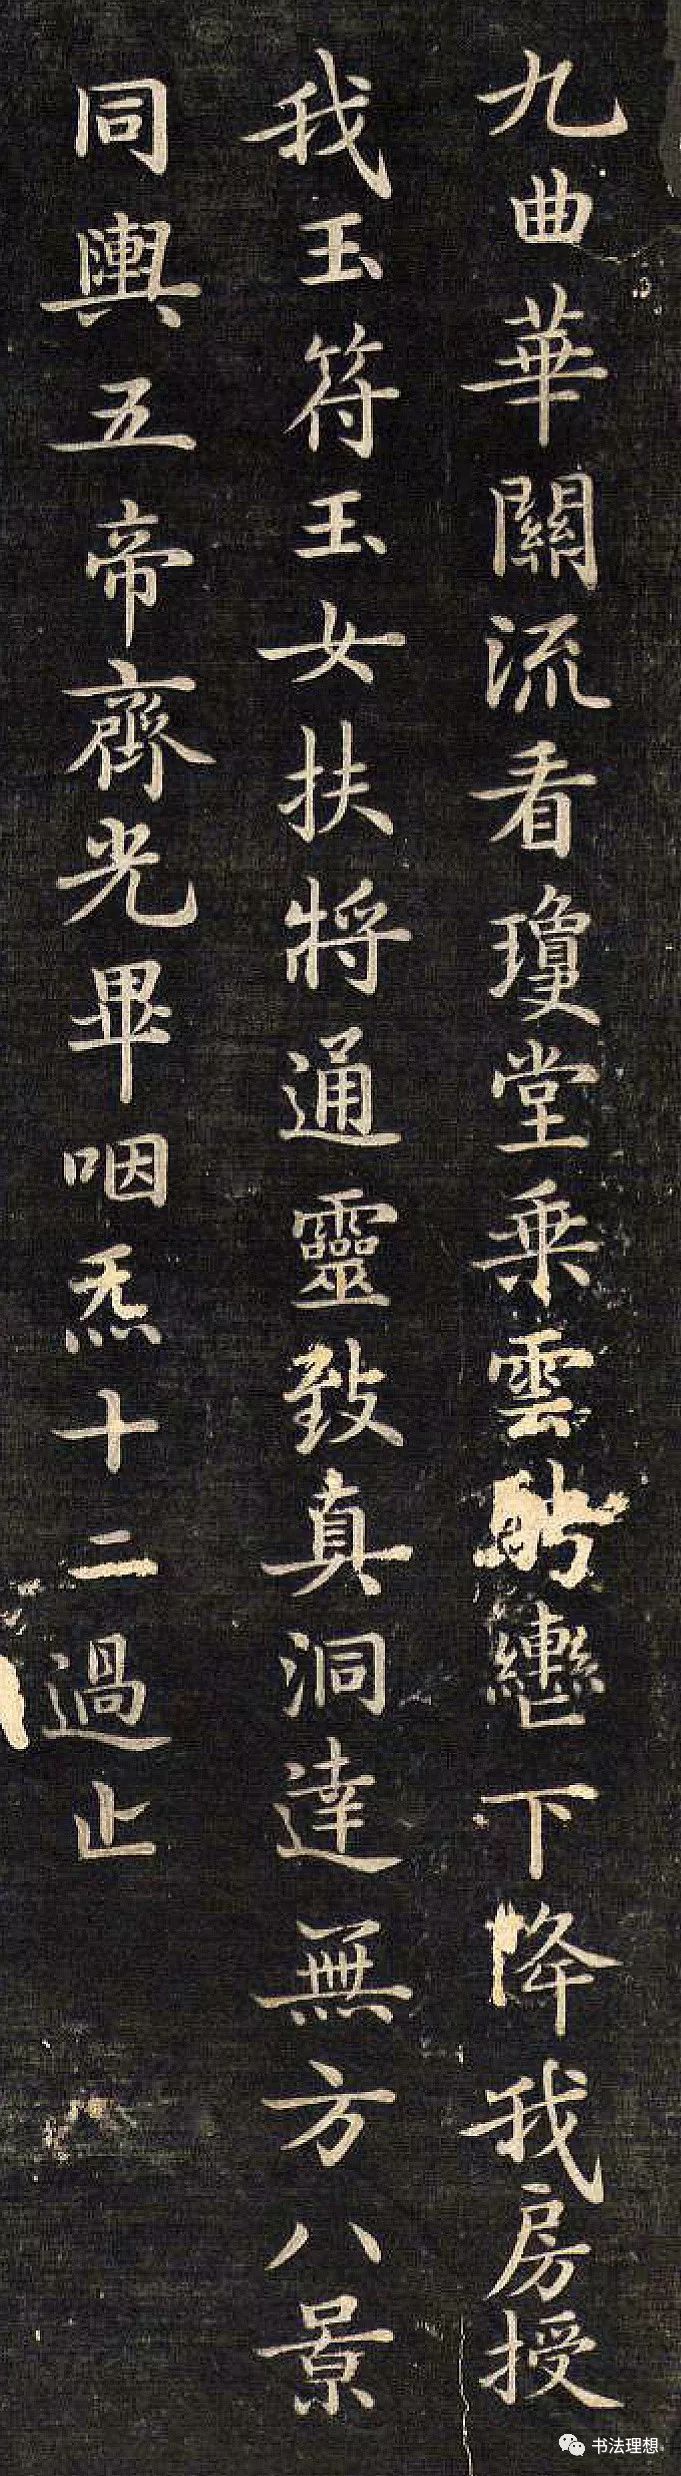 九曲華關流看瓊堂乗雲騁轡下降我房授
我玉符玉女扶將通靈致真洞達無方八景
同輿五帝齊光畢咽炁十二過止
书法理想